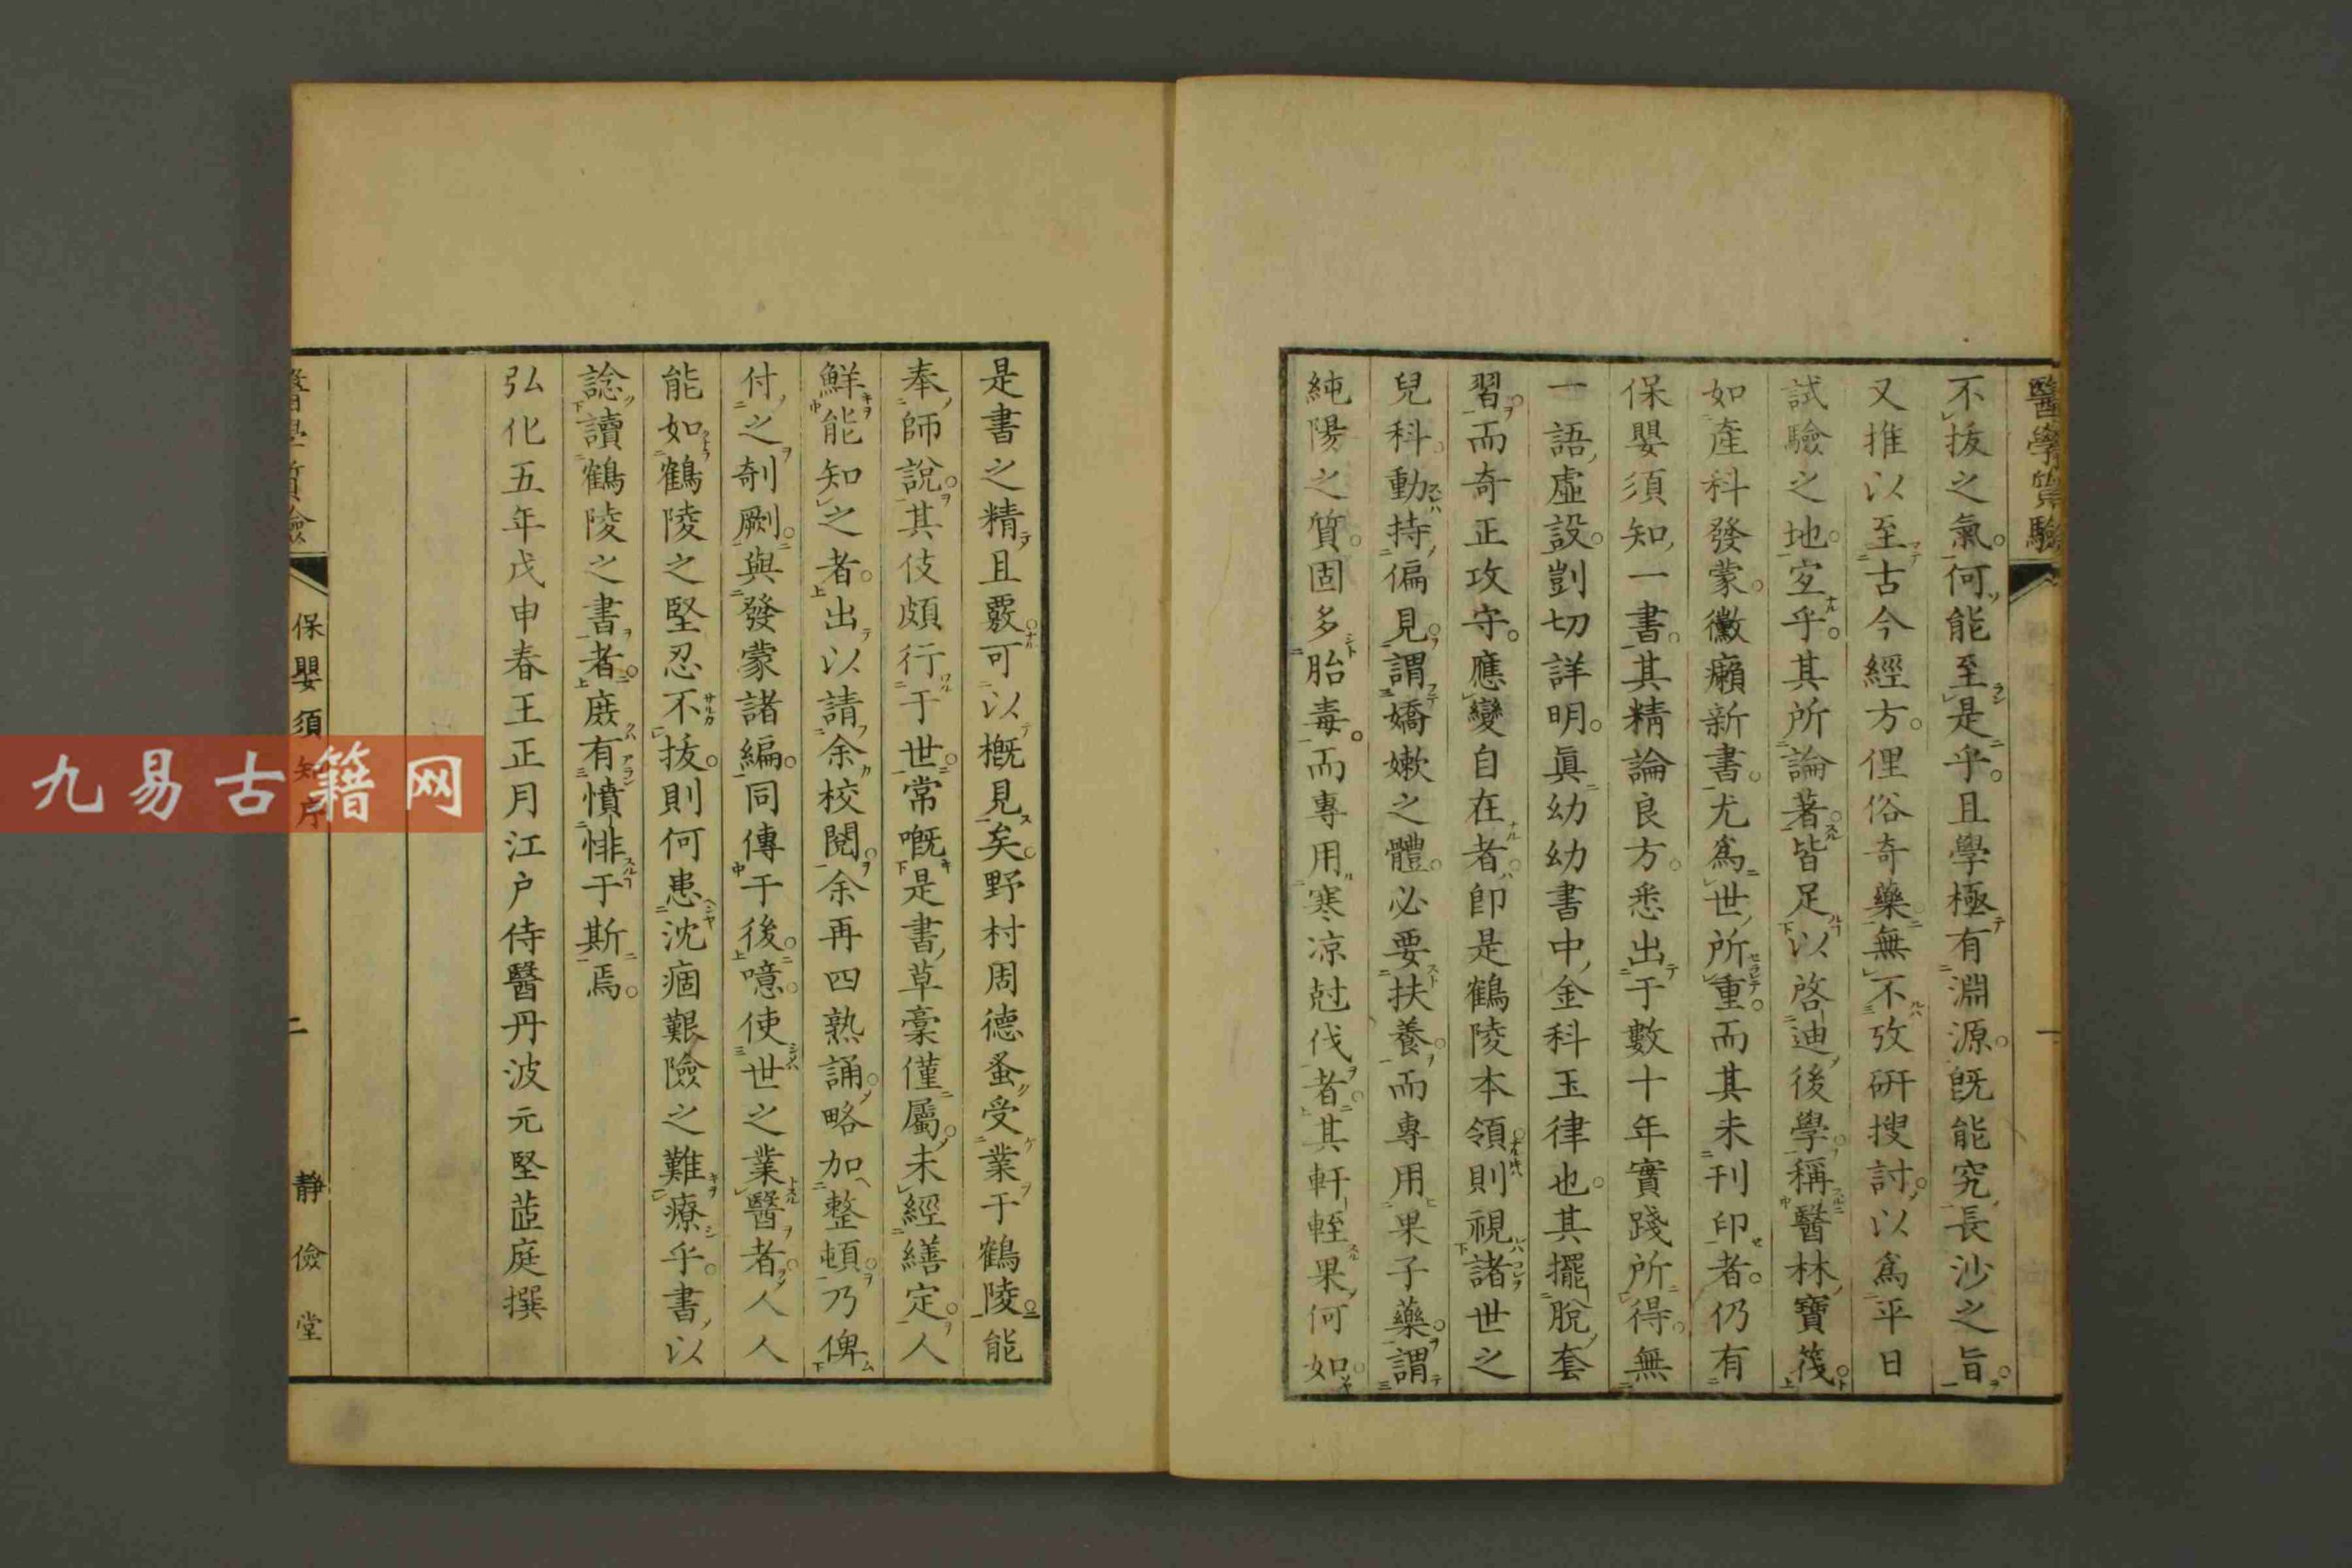 醫學質驗
一
不拔之氣何能至是乎且學極有淵源旣能究長沙之旨
又推以至古今經方俚俗奇藥無不攷研搜討以爲平日
試驗之地宜乎其所論著皆足以啓迪後學稱醫林寶筏
如產科發蒙黴癩新書尤爲世所重而其未刊印者仍有
保嬰須知一書其精論良方悉出于數十年實踐所得無
一語虛設剴切詳明眞幼幼書中金科玉律也其擺脫套
習而奇正攻守應變自在者卽是鶴陵本領則視諸世之
兒科動持偏見謂嬌嫩之體必要扶養而專用果子藥謂
純陽之質固多胎毒而專用寒涼尅伐者其軒輊果何如
是書之精且覈可以槪見矣野村周德蚤受業于鶴陵能
奉師說其伎頗行于世常嘅是書草稾僅屬未經繕定人
鮮能知之者出以請余校閱余再四熟誦略加整頓乃俾
付之剞劂與發蒙諸編同傳于後噫使世之業醫者人人
能如鶴陵之堅忍不拔則何患沈痼艱險之難療乎書以
諗讀鶴陵之書者庶有憤悱于斯焉
弘化五年戊申春王正月江戶侍醫丹波元堅茝庭撰
醫學質驗
保嬰須知序
二
靜儉堂
九易古籍网